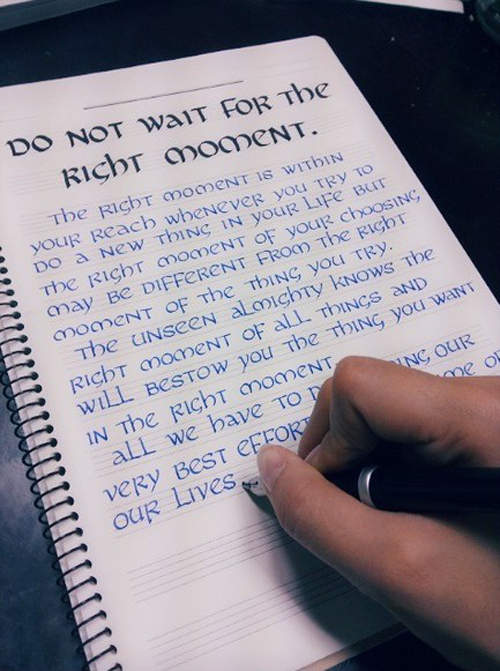 DO NOT WAIT FOR THE
RIGHT MOMENT.
THE RIGHT MOMENT IS WITHIN
YOUR REACH WHENEVER YOU TRY TO
DO A NEW THING IN YOUR LIFE BUT
THE RIGHT MOMENT OF YOUR CHOOSING
MAY BE DIFFERENT FROM THE RIGHT
MOMENT OF THE THING YOU TRY.
THE UNSEEN ALMIGHTY KNOWS THE
RIGHT MOMENT OF ALL THINGS AND
WILL BESTOW YOU THE THING YOU WANT
IN THE RIGHT MOMENT OUR
ALL WE HAVE TO
VERY BEST EFFORT
OUR LIVES